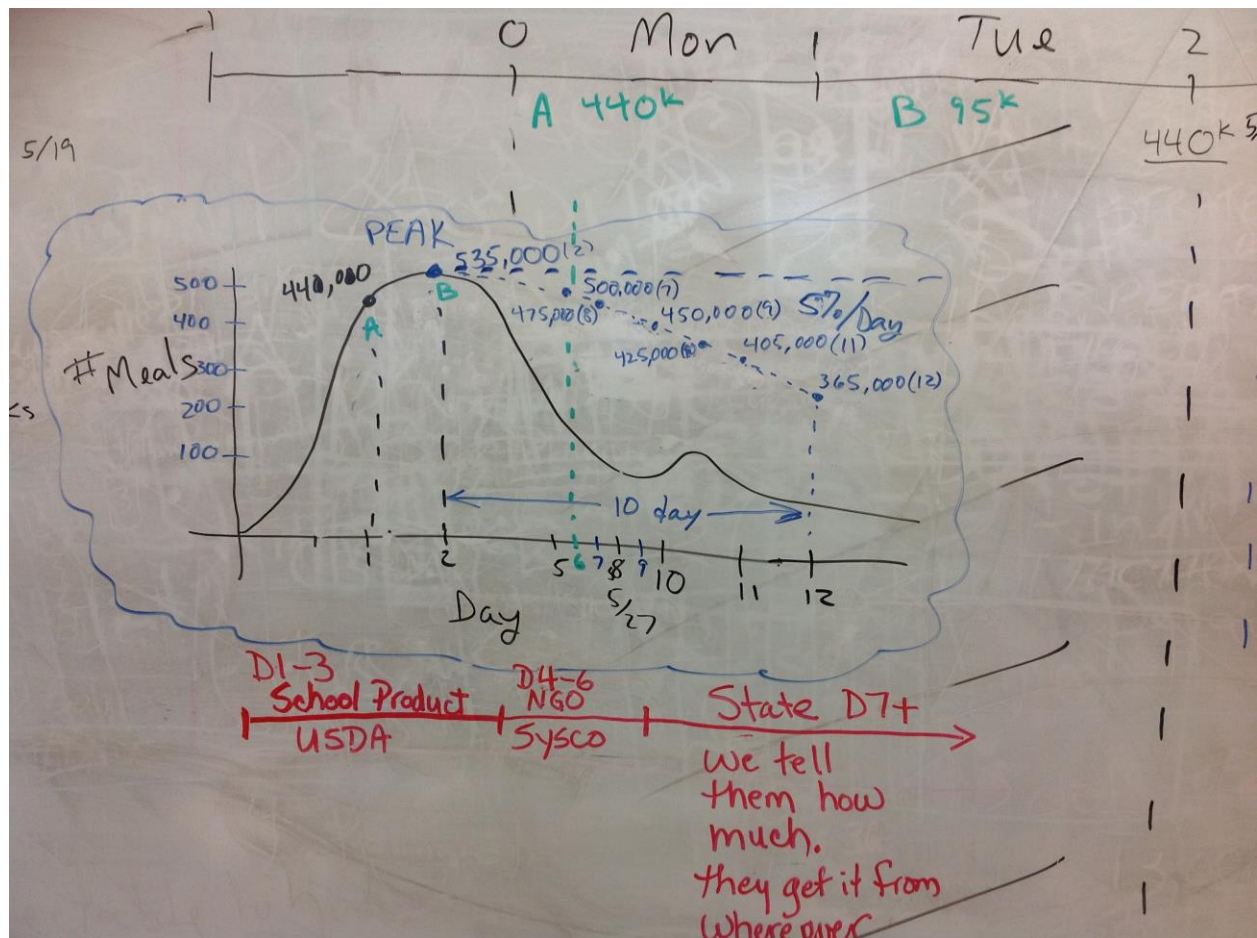 -1 0 Mon 1 Tue 2
A 440K B 95K
5/19
440K
PEAK
535,000(2)
440,000
500
B
500,000(7)
475,000(8)
450,000(9)
5%/Day
400
A
425,000
405,000(11)
# Meals
300
365,000(12)
200
100
10 day
1 2 5 6 7 8 9 10 11 12
5/27
Day
D1-3
School Product
USDA
D4-6
NGO
Sysco
State D7+
We tell
them how
much.
they get it from
where ever